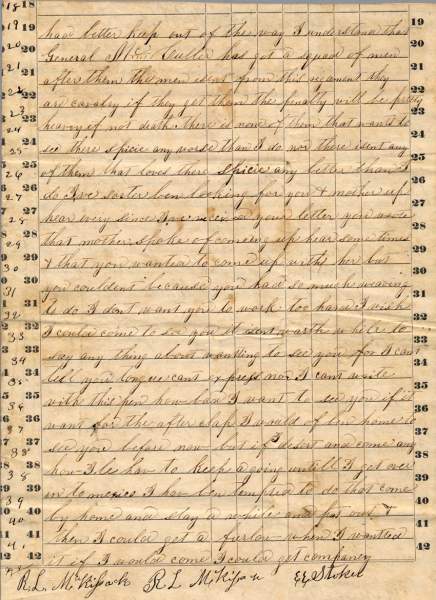 had better keep out of the way I understand that
General McCulla has got a squad of men
after them the men isent from this regament they
are cavalry if they get them the penalty will be pritty
heavery if not death. there is none of them that wants to
see there spicie any worse than I do nor there isent any
of them that loves there spicie any better than I
do I've soster ben looking for you & mother up
hear every since I've receiveд your letter you wrote
that mother spoke of comeing up hear some times
& that you wanted to come up with her but
you couldent because you had so much weaving
to do I dont want you to work too hard I wish
I could come to see you it isent warth while to
say any thing about wantting to see you for I cant
tell you tongue cant express nor I cant write
with this pen how bad I want to see you if it
want for the after clap I would of ben home to
see you before now but if I desert and come any
how I le hav to keep a going untill I get over
in to mexico I hav ben tempted to do that come
by home and stay a while and put out &
then I could get a furlow when I wanted
it if I would come I could get company
R. L. McKissack R L McKissa E E Stokes
18
19
20
21
22
23
24
25
26
27
28
29
30
31
32
33
34
35
36
37
38
39
40
41
42